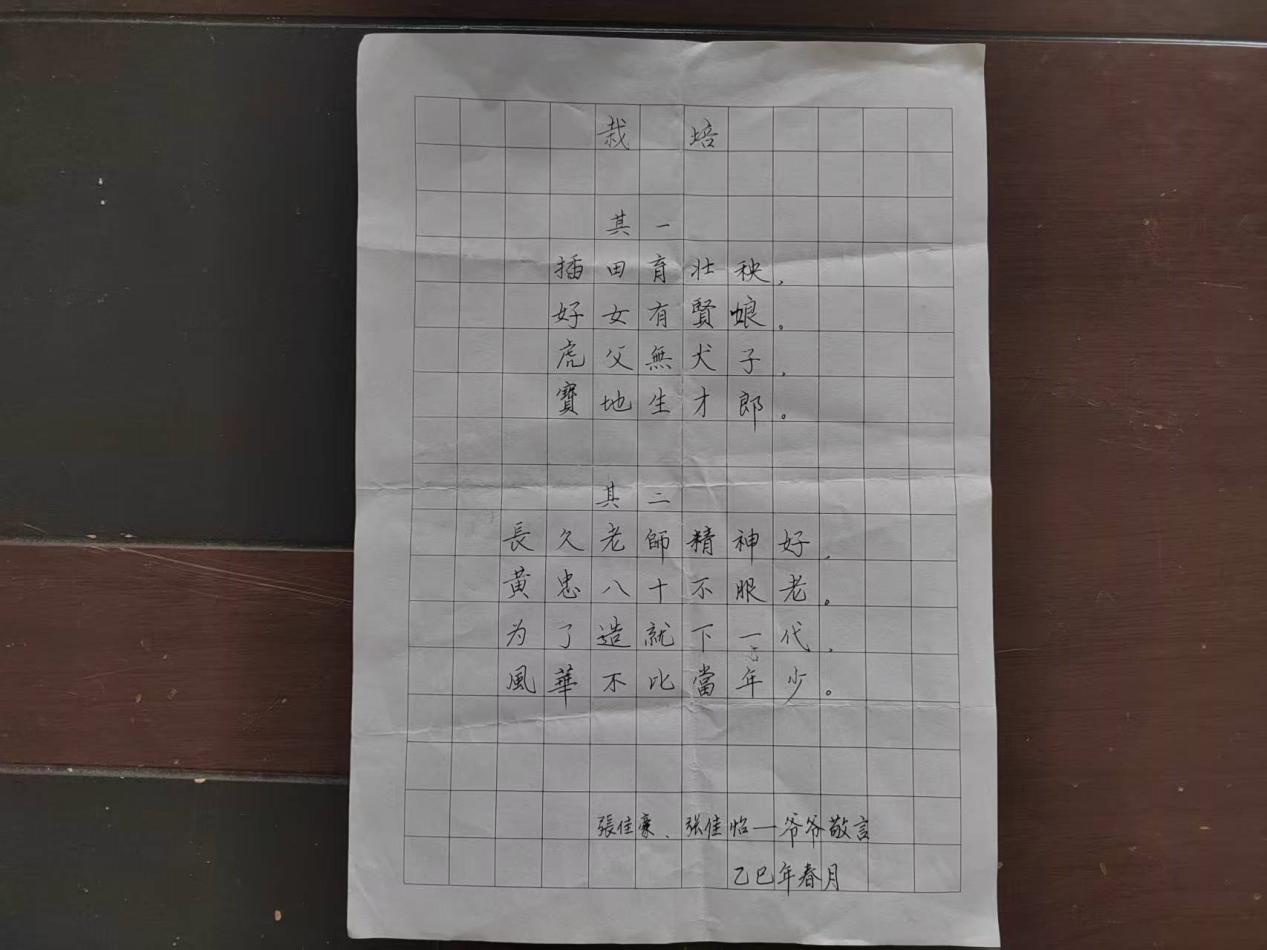 栽培
其一
插田育壮秧,
好女有賢娘。
虎父無犬子,
寶地生才郎。
其二
長久老師精神好,
黄忠八十不服老。
为了造就下一代,
風華不比當年少。
張佳豪、张佳怡一爷爷敬言
乙巳年春月